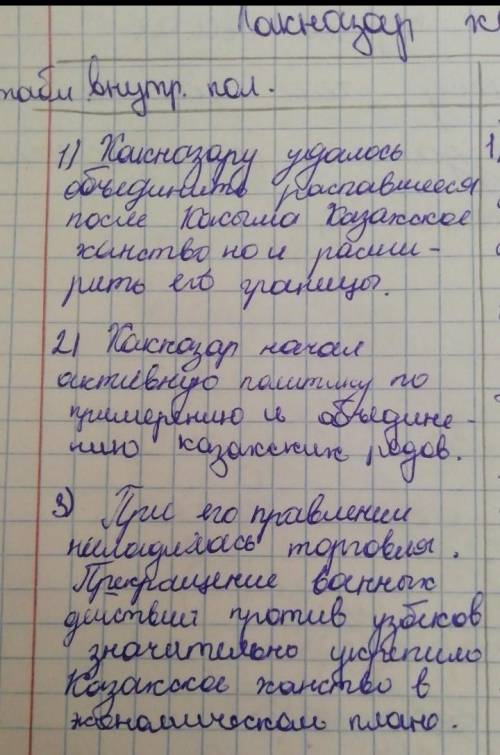 Хакназар х
табл внутр. пол.
1) Хакназару удалось
объединить распавшееся
после Касыма Казакское
ханство но и расши-
рить его границы.
2) Хакназар начал
активную политику по
примерению и объедине-
нию казакских родов.
3) При его правлении
наладилась торговля.
Прекращение ванных
действий против узбеков
значительно укрепило
Казакское ханство в
экономическом плане.
1)